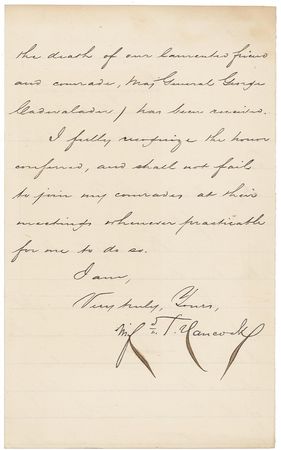 the death of our lamented friend
and comrade, Maj General George
Cadwalader) has been received.
I fully recognize the honor
conferred, and shall not fail
to join my comrades at their
meetings whenever practicable
for me to do so.
I am,
Very truly, Yours,
Hancock